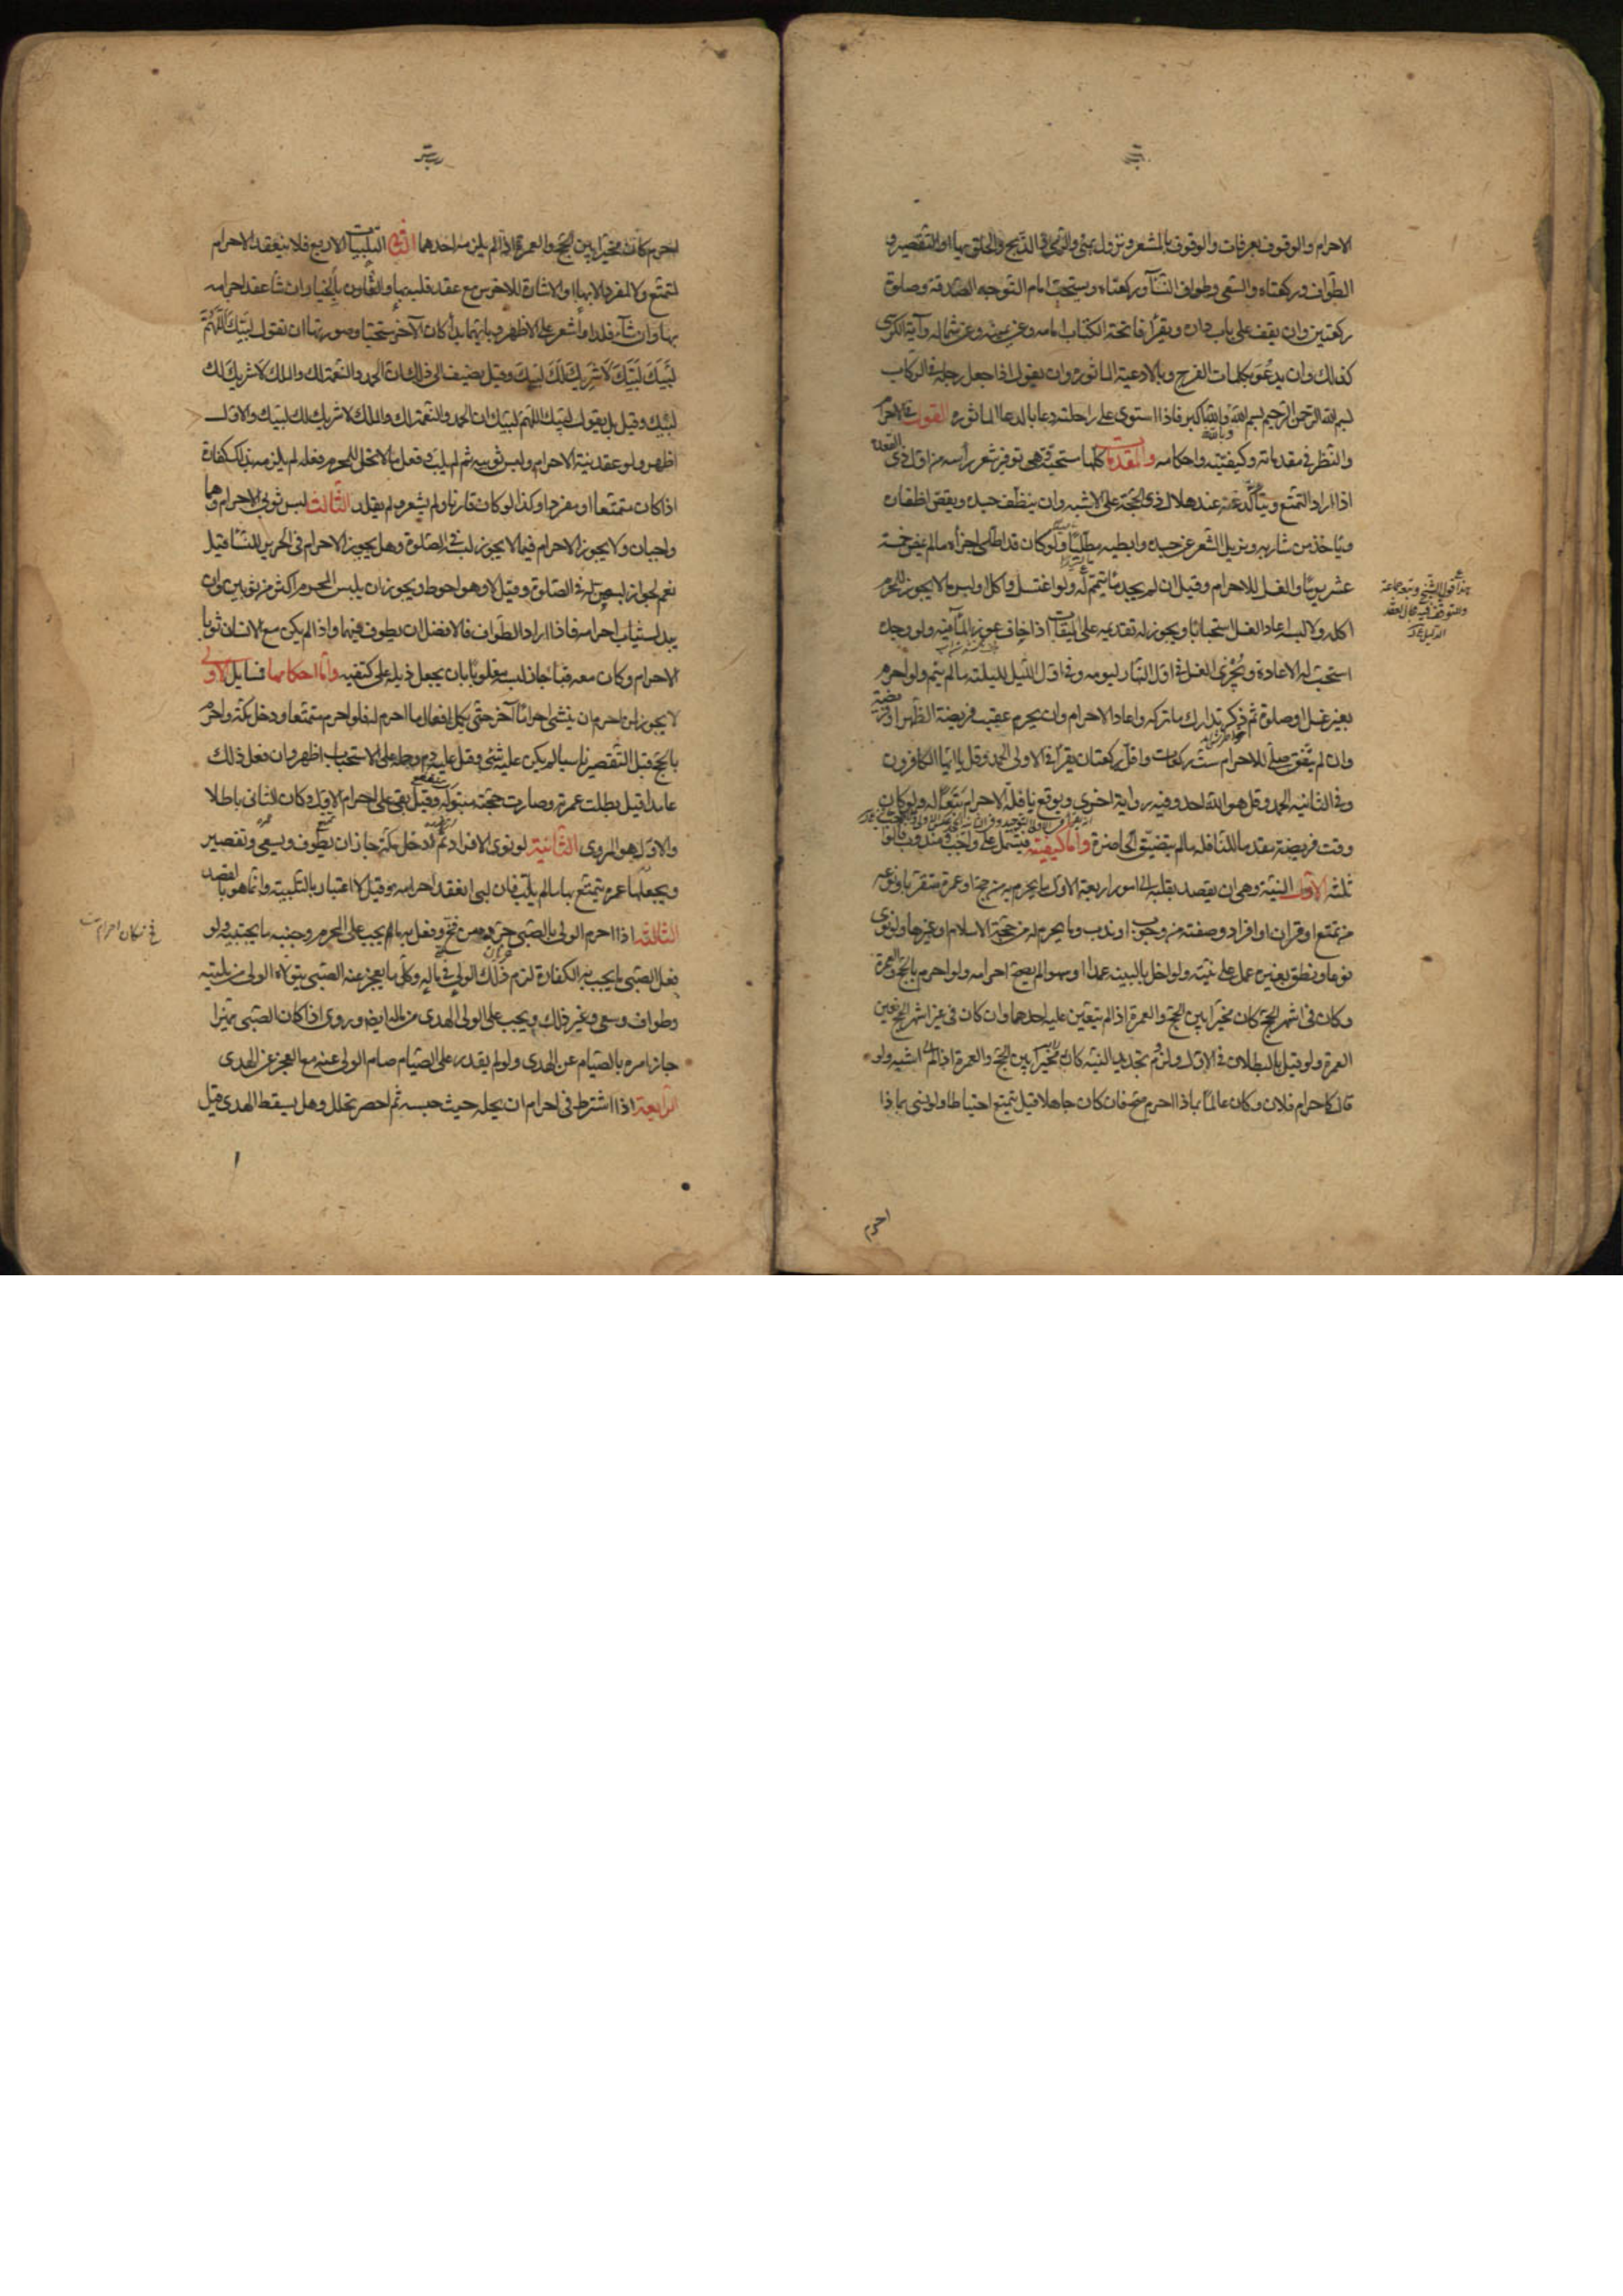 الاحرام والوقوف بعرفات والوقوف بالمشعر ونزول بمنى والرمي والذبح والحلق بها او التقصير و
الطواف وركعتاه والسعى وطواف النسآء وركعتاه ويستحب امام التوجه الصدقة وصلوة
ركعتين وان يقف على باب داره ويقرأ فاتحة الكتاب امامه وعن يمينه وعن شماله وآية الكرسى
كذلك وان يدعو بكلمات الفرج وبالادعية الماثورة وان يقول اذا جعل رجله فى الركاب
بسم الله الرحمن الرحيم بسم الله وبالله والله اكبر فاذا استوى على راحلته دعا بالدعا الماثورة القول فى الاحرام
والنظر فى مقدماته وكيفيته واحكامه والمقدمات كلها مستحبة وهى توفير شعر رأسه من اول ذى القعدة
اذا اراد التمتع ويتأكد عند هلال ذى الحجة على الاشبه وان ينظف جسده ويقص اظفاره
ويأخذ من شاربه ويزيل الشعر عن جسده وابطيه مطليًا ولو كان قد اطلى اجزأه ما لم يمض خمسة
عشر يومًا والغسل للاحرام وقيل ان لم يجد مآء تيمم له ولو اغتسل واكل او لبس ما لا يجوز للمحرم
اكله ولا لبسه اعاد الغسل استحبابًا ويجوز له تقديمه على الميقات اذا خاف عوز المآء فيه ولو وجده
استحب له الاعادة ويُجْزى الغسل فى اول النهار ليومه وفى اول الليل لليلته ما لم ينم ولو احرم
بغير غسل او صلوة ثم ذكر تدارك ما تركه واعاد الاحرام وان يحرم عقيب فريضة الظهر او فريضة
وان لم يتفق صلى للاحرام ست ركعات واقل ركعتان يقرأ فى الاولى الحمد وقل يا ايها الكافرون
وفى الثانية الحمد وقل هو الله احد وفيه رواية اخرى ويوقع نافلة الاحرام تبعًا له ولو كان
وقت فريضة مقدما للنافلة ما لم يتضيق الحاضرة واما كيفيته فيشتمل على واجب ومندوب فالوا
ثلثه الاول النية وهى ان يقصد بقلبه الى امور اربعة الاول ما يحرم به من حج او عمرة متقربا ونوعه
من تمتع او قران او افراد وصفته من وجوب او ندب وما يحرم له من حجة الاسلام او غيرها ولو نوى
نوعا ونطق بغيره عمل على نيته ولو اخل بالنية عمدا او سهوا لم يصح احرامه ولو احرم بالحج والعمرة
وكان فى اشهر الحج كان مخيرًا بين الحج والعمرة اذا لم يتعين عليه احدهما وان كان فى غير اشهر الحج تعين
العمرة ولو قيل بالبطلان فى الاول ولزوم تجديد النية كان اشبه ولو
قال كاحرام فلان وكان عالمًا بماذا احرم صح فان كان جاهلا قيل يتمتع احتياطا ولو نسى بماذا
احرم
احرم كان مخيرًا بين الحج والعمرة اذا لم يلزمه احدهما الثانى التلبيات الاربع فلا ينعقد الاحرام
لتمتع ولا لمفرد الا بها او الاشارة للاخرس مع عقد قلبه بها والقارن بالخيار ان شا عقد احرامه
بها وان شآء قلد او أشعر على الاظهر وبايهما بدأ كان الآخر مستحبا وصورتها ان تقول لبيك اللهم
لبيك لبيك لا شريك لك لبيك وقيل يضيف الى ذلك ان الحمد والنعمة لك والملك لا شريك لك
لبيك وقيل بل يقول لبيك اللهم لبيك ان الحمد والنعمة لك والملك لا شريك لك لبيك والاول
اظهر ولو عقد نية الاحرام ولبس ثوبيه ثم لم يلب وفعل ما لا يحل للمحرم فعله لم يلزمه بذلك كفارة
اذا كان متمتعا او مفردا وكذا لو كان قارنا ولم يشعر ولم يقلد الثالث لبس ثوبى الاحرام وهما
واجبان ولا يجوز الاحرام فيما لا يجوز لبسه فى الصلوة وهل يجوز الاحرام فى الحرير للنسآء قيل
نعم لجواز لبسهن له فى الصلوة وقيل لا وهو احوط ويجوز ان يلبس المحرم اكثر من ثوبين وان
يبدل ثياب احرامه فاذا اراد الطواف فالافضل ان يطوف فيهما واذا لم يكن مع الانسان ثوبا
الاحرام وكان معه قبآء جاز لبسه مقلوبًا بان يجعل ذيله على كتفيه واما احكامها فمسايل الاولى
لا يجوز لمن احرم ان ينشى احرامًا آخر حتى يكمل افعال ما احرم له فلو احرم متمتعا ودخل مكة واحرم
بالحج قبل التقصير ناسيا لم يكن عليه شئ وقيل عليه دم وحمله على الاستحباب اظهر وان فعل ذلك
عامدا قيل بطلت عمرته وصارت حجته مبتولة وقيل بقى على احرام الاول وكان الثانى باطلا
والاول هو المروى الثانية لو نوى الافراد ثم دخل مكة جاز ان يطوف ويسعى وتقصير
ويجعلها عمرة يتمتع بها ما لم يلب فان لبى انعقد احرامه وقيل لا اعتبار بالتلبية وانما هو بالقصد
الثالثه اذا احرم الولى بالصبى جرده من فخ وفعل به ما يجب على المحرم وجنبه ما يجتنبه ولو
فعل الصبى ما يجب به الكفارة لزم ذلك الولى فى ماله وكل ما يعجز عنه الصبى يتولاه الولى من تلبية
وطواف وسعى وغير ذلك ويجب على الولى الهدى من ماله ايضا وروى اذا كان الصبى مميزا
جاز امره بالصيام عن الهدى ولو لم يقدر على الصيام صام الولى عنه مع العجز عن الهدى
الرابعة اذا اشترط فى احرامه ان يحله حيث حبسه ثم احصر تحلل وهل يسقط الهدى قيل